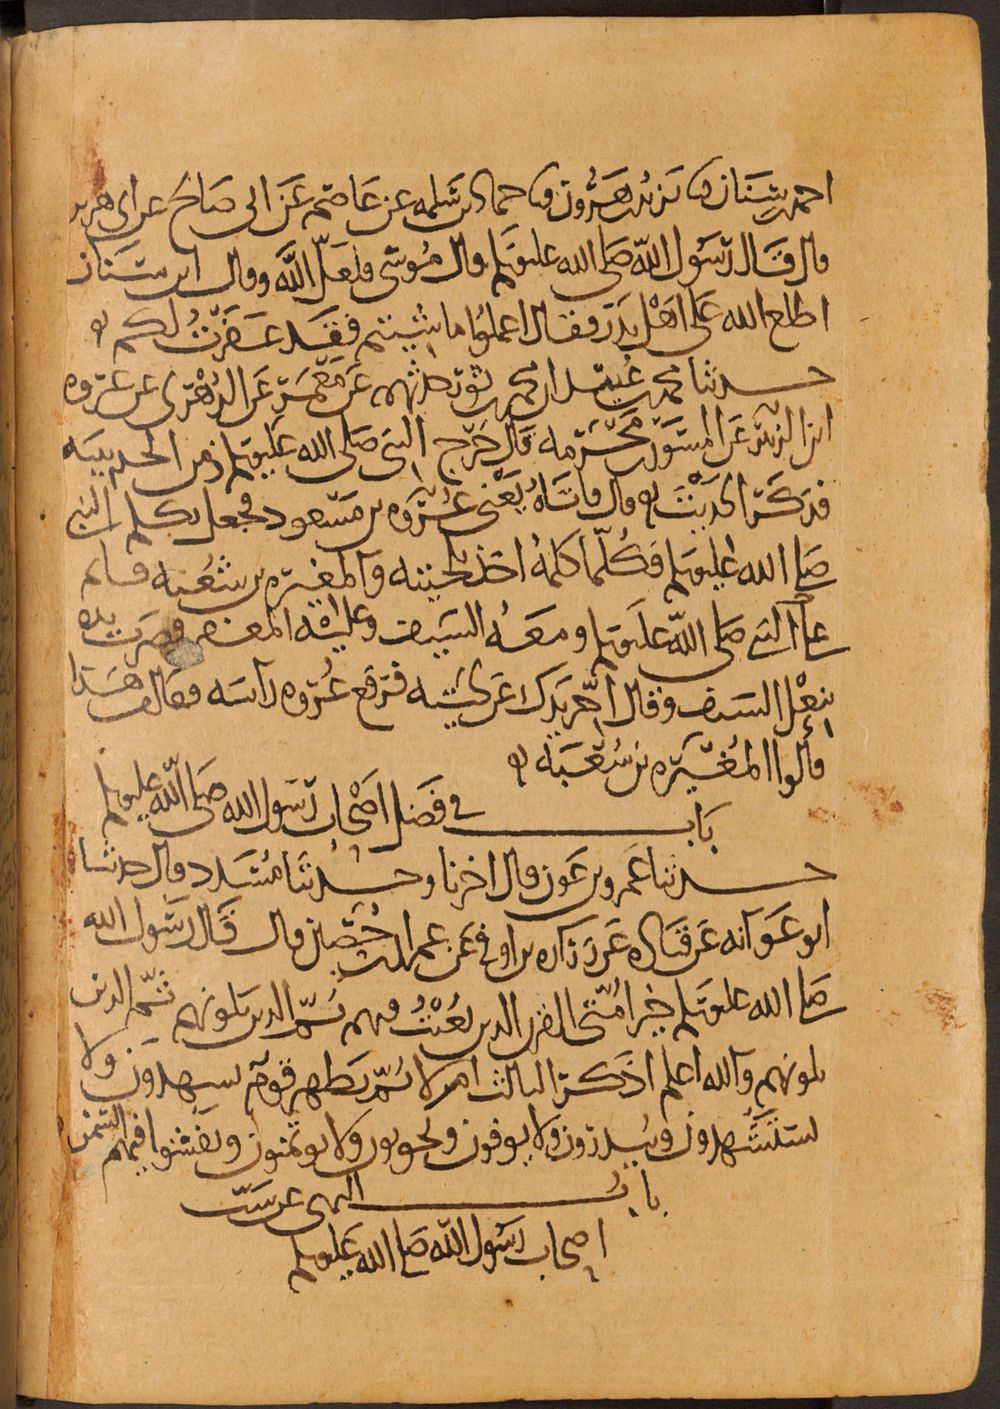 احمد بن سنان نا يزيد بن هرون نا حماد بن سلمه عن عاصم عن ابى صالح عن ابى هريره
قال قال رسول الله صلى الله عليه وسلم قال موسى فلعل الله وقال ابن سنان
اطلع الله على اهل بدر فقال اعملوا ما شيتم فقد غفرت لكم
حدثنا محمد بن عبيد ان محمد بن ثور حدثهم عن معمر عن الزهرى عن عروه
ابن الزبير عن المسور بن مخرمه قال خرج النبى صلى الله عليه وسلم زمن الحديبيه
فذكر الحديث قال فاتاه يعنى عروه بن مسعود فجعل يكلم النبى
صلى الله عليه وسلم فكلما كلمه اخذ بلحيته والمغيره بن شعبه قايم
على النبى صلى الله عليه وسلم ومعه السيف وعليه المغفر فضرب يده
بنعل السيف وقال اخر يدك عن لحيته فرفع عروه راسه فقال من هذا
قالوا المغيره بن شعبه
باب فى فضل اصحاب رسول الله صلى الله عليه وسلم
حدثنا عمرو بن عون قال اخبرنا وحدثنا مسدد قال حدثنا
ابو عوانه عن قتاده عن زراره بن اوفى عن عمران بن حصين قال قال رسول الله
صلى الله عليه وسلم خير امتى القرن الذين بعثت فيهم ثم الذين يلونهم ثم الذين
يلونهم والله اعلم اذكر الثالث ام لا ثم يظهر قوم يشهدون ولا
يستشهدون وينذرون ولا يوفون ويخونون ولا يوتمنون ويفشوا فيهم السمن
باب النهى عن سب
اصحاب رسول الله صلى الله عليه وسلم